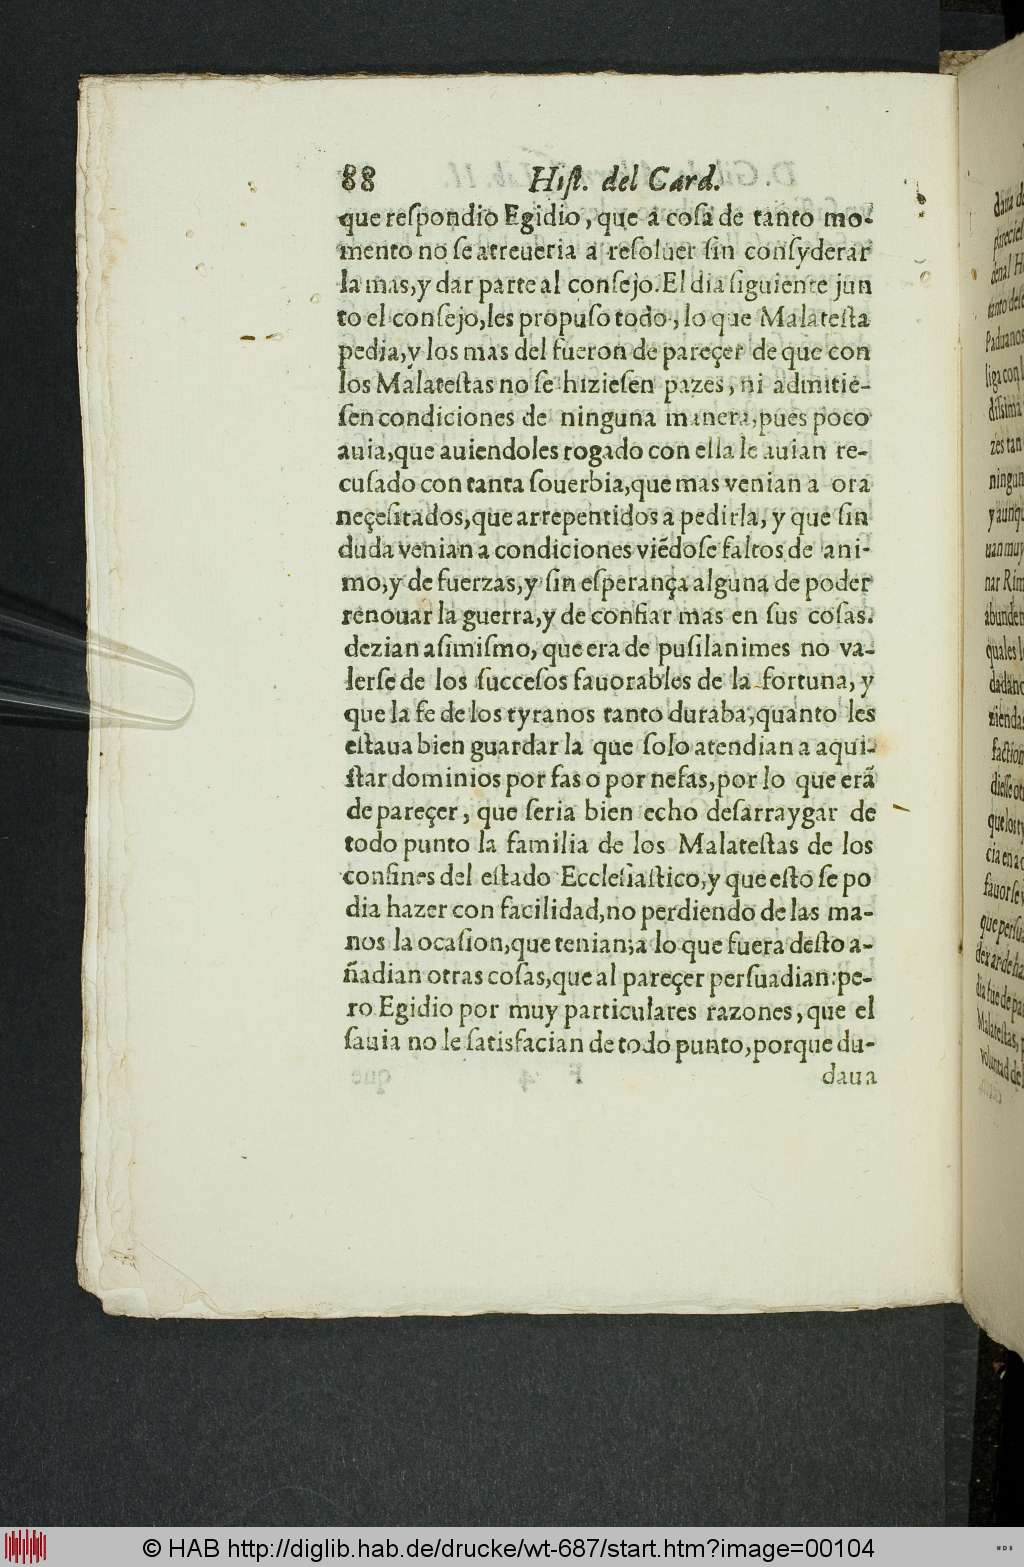 88 Hiſt. del Card.
que reſpondio Egidio, que a coſa de tanto mo-
mento no ſe atreueria a reſoluer ſin conſyderar
la mas, y dar parte al conſejo. El dia ſiguiente jun
to el conſejo, les propuſo todo, lo que Malateſta
pedia, y los mas del fueron de pareçer de que con
los Malateſtas no ſe hizieſen pazes, ni admitie-
ſen condiciones de ninguna manera, pues poco
auia, que auiendoles rogado con ella le auian re-
cuſado con tanta ſouerbia, que mas venian a ora
neçeſitados, que arrepentidos a pedirla, y que ſin
duda venian a condiciones viẽdoſe faltos de ani-
mo, y de fuerzas, y ſin eſperança alguna de poder
renouar la guerra, y de confiar mas en ſus coſas.
dezian aſimiſmo, que era de puſilanimes no va-
lerſe de los ſucceſos fauorables de la fortuna, y
que la fe de los tyranos tanto duraba, quanto les
eſtaua bien guardar la que ſolo atendian a aqui-
ſtar dominios por fas o por nefas, por lo que erã
de pareçer, que ſeria bien echo deſarraygar de
todo punto la familia de los Malateſtas de los
confines del eſtado Eccleſiaſtico, y que eſto ſe po
dia hazer con facilidad, no perdiendo de las ma-
nos la ocaſion, que tenian; a lo que fuera deſto a-
ñadian otras coſas, que al pareçer perſuadian: pe-
ro Egidio por muy particulares razones, que el
ſauia no le ſatisfacian de todo punto, porque du-
daua
© HAB http://diglib.hab.de/drucke/wt-687/start.htm?image=00104